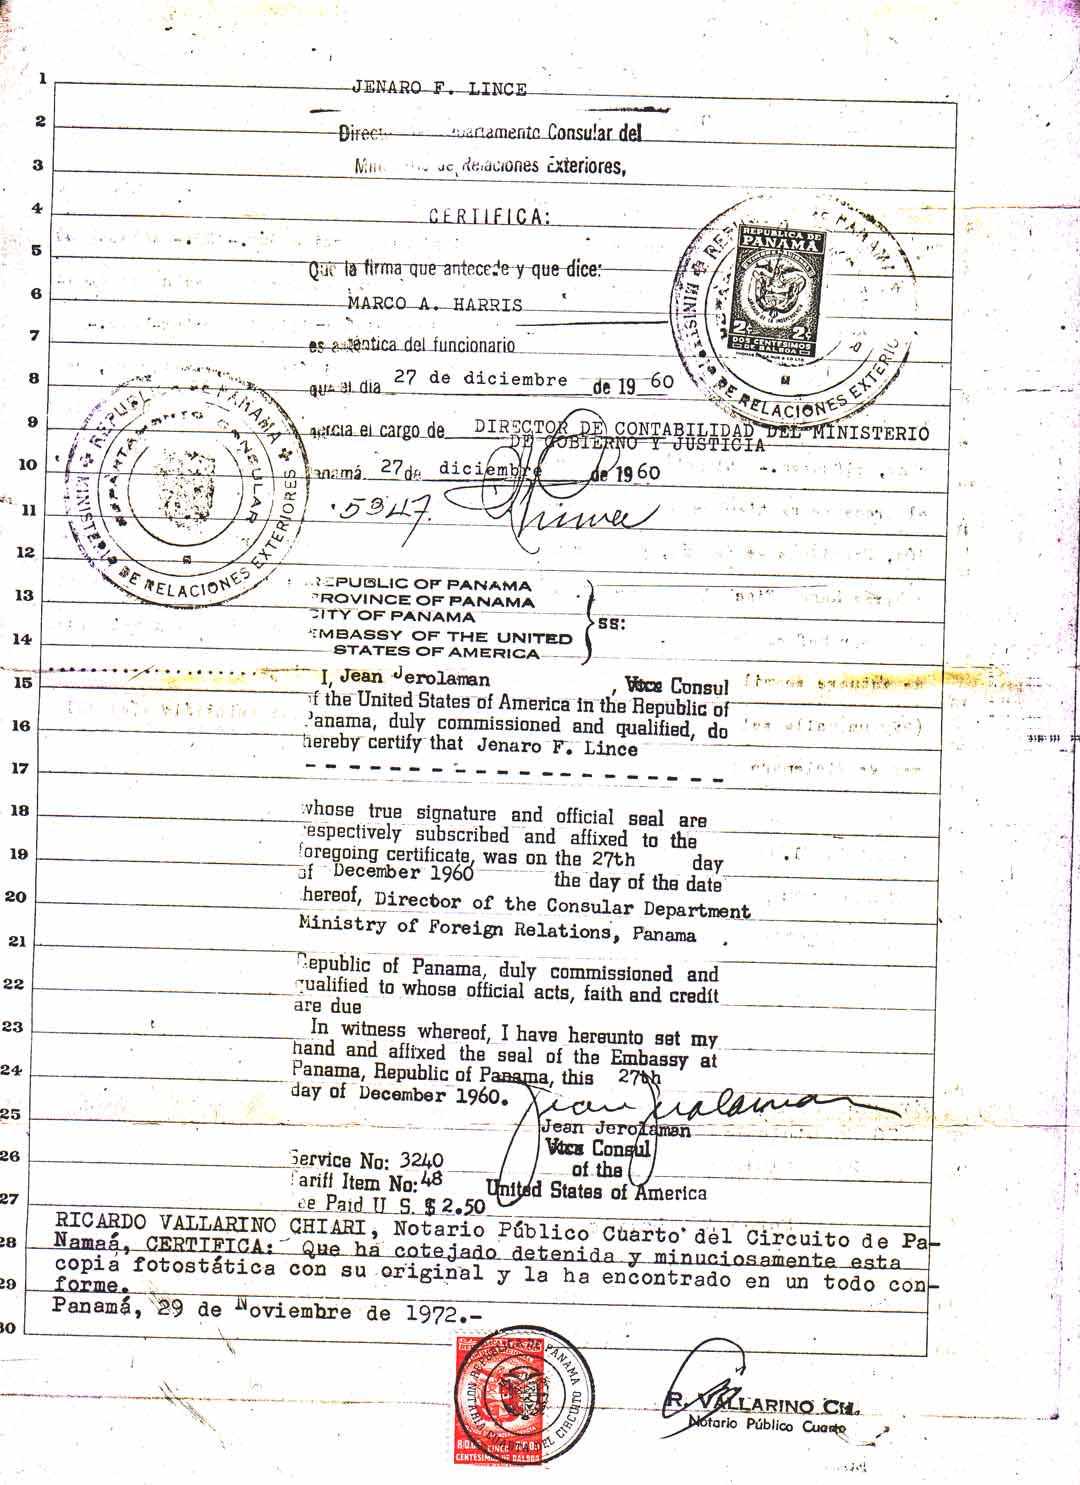 1
JENARO F. LINCE
2
Departamento Consular del
3
de Relaciones Exteriores,
4
CERTIFICA:
5
Que la firma que antecede y que dice:
6
MARCO A. HARRIS
7
es auténtica del funcionario
8
que el dia 27 de diciembre de 19 60
9
ejercia el cargo de DIRECTOR DE CONTABILIDAD DEL MINISTERIO
DE GOBIERNO Y JUSTICIA
10
Panamá, 27 de diciembre de 19 60
11
5347.
12
REPUBLICA DE PANAMA
DEPARTAMENTO CONSULAR
MINISTERIO DE RELACIONES EXTERIORES
REPUBLICA DE PANAMA
MINISTERIO DE RELACIONES EXTERIORES
REPUBLICA DE
PANAMA
2c 2c
DOS CENTESIMOS
DE BALBOA
REPUBLIC OF PANAMA
13
PROVINCE OF PANAMA
CITY OF PANAMA
SS:
14
EMBASSY OF THE UNITED
STATES OF AMERICA
15
I, Jean Jerolaman , Vice Consul
of the United States of America in the Republic of
16
Panama, duly commissioned and qualified, do
hereby certify that Jenaro F. Lince
17
- - - - - - - - - - - - - - - - - - - -
18
whose true signature and official seal are
respectively subscribed and affixed to the
19
foregoing certificate, was on the 27th day
of December 1960 the day of the date
20
hereof, Director of the Consular Department
Ministry of Foreign Relations, Panama .
21
Republic of Panama, duly commissioned and
22
qualified to whose official acts, faith and credit
are due
23
In witness whereof, I have hereunto set my
hand and affixed the seal of the Embassy at
24
Panama, Republic of Panama, this 27th
day of December 1960.
Jean Jerolaman
25
Jean Jerolaman
Vice Consul
26
Service No: 3240 of the
Tariff Item No: 48 United States of America
27
Fee Paid U S. $ 2.50
RICARDO VALLARINO CHIARI, Notario Público Cuarto del Circuito de Pa-
28
Namaá, CERTIFICA: Que ha cotejado detenida y minuciosamente esta
copia fotostática con su original y la ha encontrado en un todo con-
29
forme.
Panamá, 29 de Noviembre de 1972.-
30
REPUBLICA DE PANAMA
NOTARIA CUARTA DEL CIRCUITO
CENTESIMOS DE BALBOA
R. VALLARINO CH.
Notario Público Cuarto